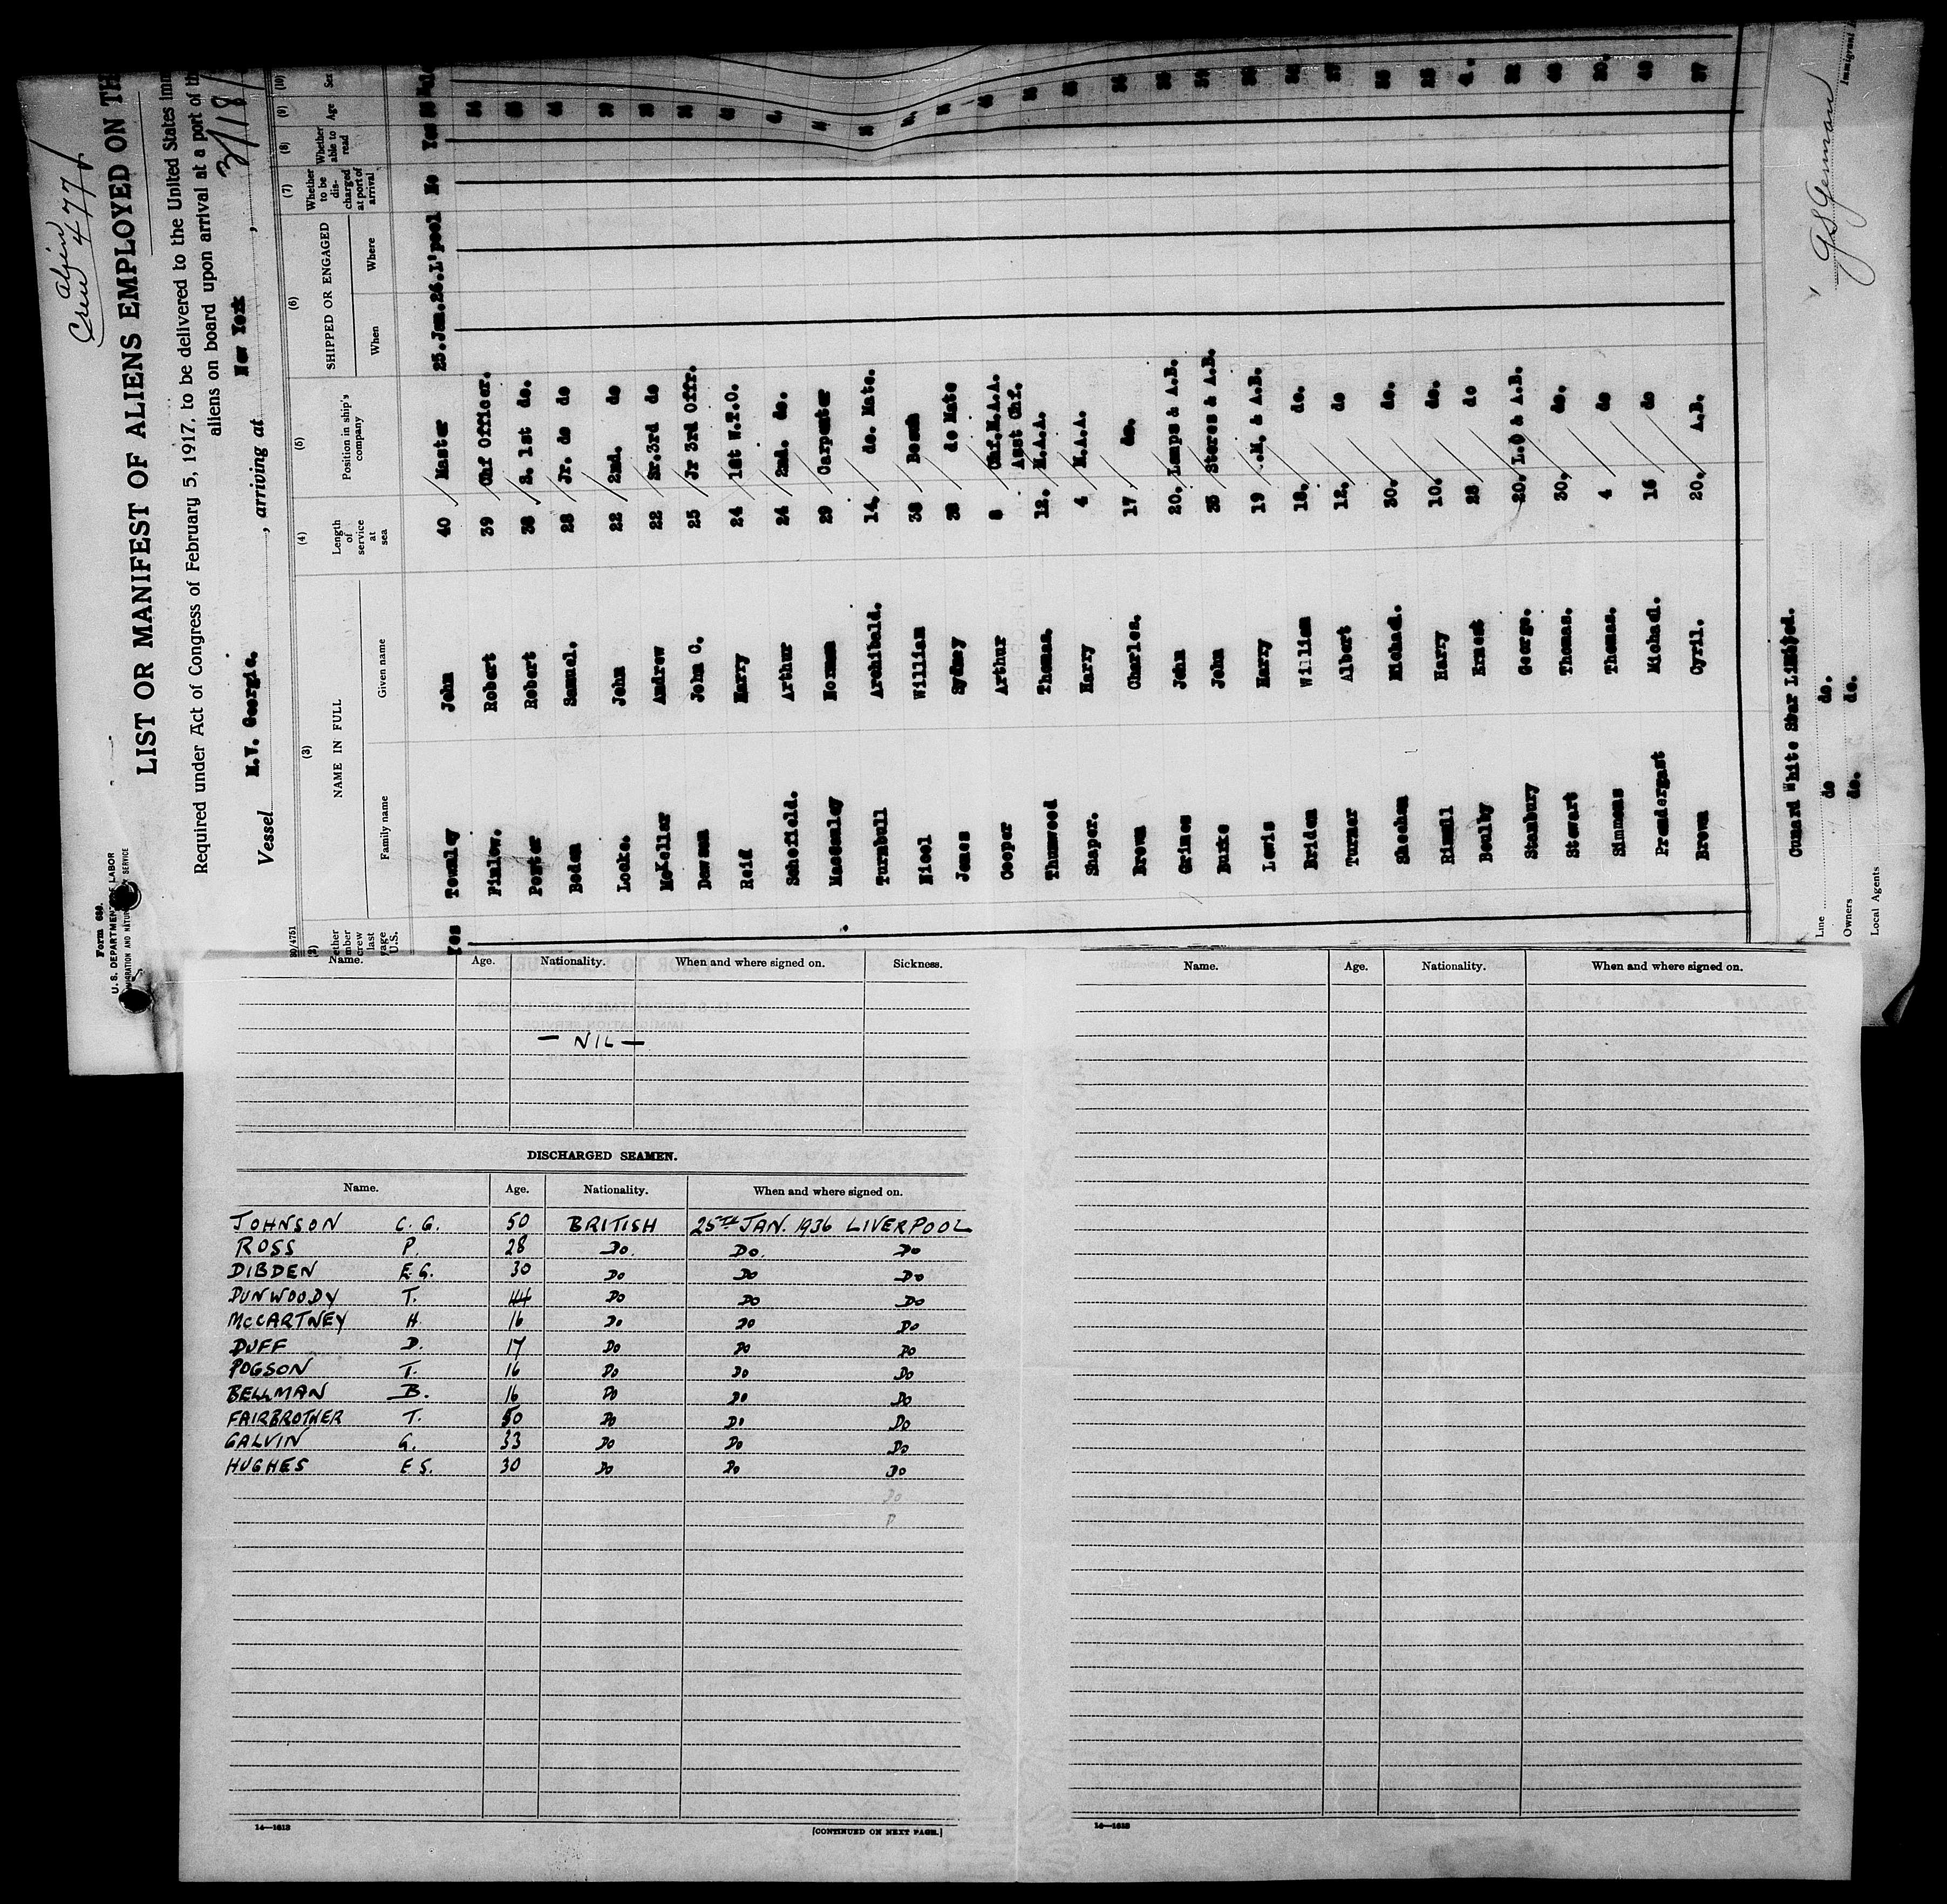 Alien
Crew 477
Form 680.
U. S. DEPARTMENT OF LABOR
LIST OR MANIFEST OF ALIENS EMPLOYED ON TH
Required under Act of Congress of February 5, 1917, to be delivered to the United States imm
aliens on board upon arrival at a port of th
Vessel M.V. Georgic. , arriving at New York , 3/18/
(3) (4) (5) (6) (7) (8) (9) (10)
NAME IN FULL Length of service at sea Position in ship's company SHIPPED OR ENGAGED Whether to be discharged at port of arrival Whether able to read Age Sex
Family name Given name When Where
Yes Townley John 40 Master 25.Jan.26.L'pool No Yes
Finlow. Robert 39 Chf Officer.
Porter Robert 38 S. 1st do.
Boden Samuel. 28 Jr. do do
Locke. John 22 2nd. do
McKellar Andrew 22 Sr.3rd do
Dawson John C. 25 Jr 3rd Offr.
Reid Harry 24 1st W.T.O.
Schofield. Arthur 24 2nd. do.
MacCauley Norman 29 Carpenter
Turnbull Archibald. 14. do. Mate.
Nicol William 38 Bosun
Jones Sydney 38 do Mate
Cooper Arthur 8 Chf.M.A.A.
Asst Chf.
Thumwood Thomas. 12. M.A.A.
Shaper. Harry 4 M.A.A.
Brown Charles. 17 do.
Grimes John 20. Lamps & A.B.
Burke John 35 Stores & A.B.
Lewis Harry 19 .M. & A.B.
Briden William 18. do.
Turner Albert 12. do
Sheehan Michael. 30. do.
Rimmill Harry 10. do.
Boulby Ernest 28 do
Stanbury George. 20. L.O & A.B.
Stewart Thomas. 30. do.
Simmons Thomas. 4 do
Prendergast Michael. 16 do
Brown Cyril. 20. A.B.
Line Cunard White Star Limited.
Owners do do.
Local Agents do. do.
G S German
Immigrant
Name. Age. Nationality. When and where signed on. Sickness.
— NIL —
DISCHARGED SEAMEN.
Name. Age. Nationality. When and where signed on.
JOHNSON C. G. 50 BRITISH 25TH JAN. 1936 LIVERPOOL
ROSS P. 28 Do. Do. Do
DIBDEN E.G. 30 Do Do Do
DUNWOODY T. 44 Do Do Do
McCARTNEY H. 16 Do Do Do
DUFF D. 17 Do Do Do
POGSON T. 16 Do Do Do
BELLMAN B. 16 Do Do Do
FAIRBROTHER T. 50 Do Do Do
GALVIN G. 33 Do Do Do
HUGHES E S. 30 Do Do Do
Do
D
14—1613 [CONTINUED ON NEXT PAGE.]
Name. Age. Nationality. When and where signed on.
14—1613